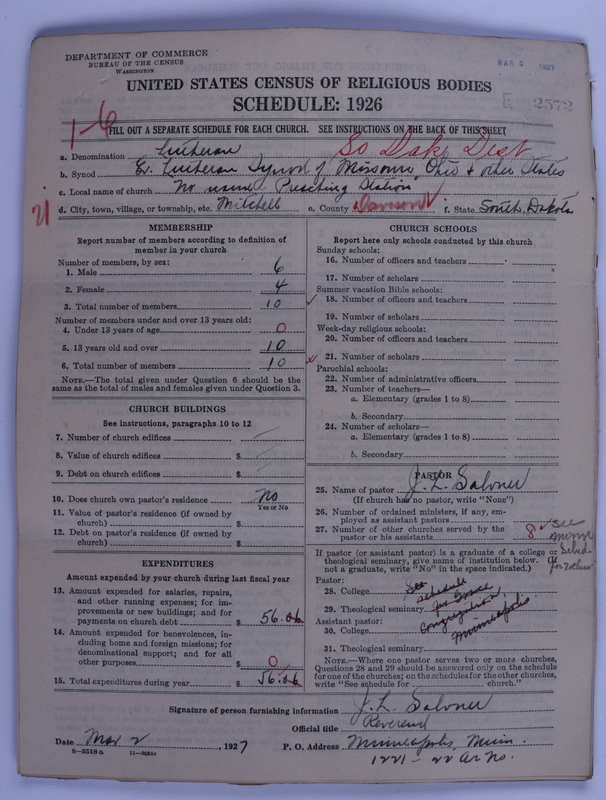 DEPARTMENT OF COMMERCE
BUREAU OF THE CENSUS
WASHINGTON
MAR 5 1927
UNITED STATES CENSUS OF RELIGIOUS BODIES
SCHEDULE: 1926
2572
1-6
FILL OUT A SEPARATE SCHEDULE FOR EACH CHURCH. SEE INSTRUCTIONS ON THE BACK OF THIS SHEET
So Dak Dist
a. Denomination Lutheran
b. Synod Ev. Lutheran Synod of Missouri, Ohio & other States
c. Local name of church No name Preaching Station
d. City, town, village, or township, etc. Mitchell e. County Davison f. State South Dakota
MEMBERSHIP
Report number of members according to definition of member in your church
Number of members, by sex:
1. Male 6
2. Female 4
3. Total number of members 10
Number of members under and over 13 years old:
4. Under 13 years of age 0
5. 13 years old and over 10
6. Total number of members 10
NOTE.—The total given under Question 6 should be the same as the total of males and females given under Question 3.
CHURCH BUILDINGS
See instructions, paragraphs 10 to 12
7. Number of church edifices
8. Value of church edifices $
9. Debt on church edifices $
10. Does church own pastor's residence No
Yes or No
11. Value of pastor's residence (if owned by church) $
12. Debt on pastor's residence (if owned by church) $
EXPENDITURES
Amount expended by your church during last fiscal year
13. Amount expended for salaries, repairs, and other running expenses; for improvements or new buildings; and for payments on church debt $ 56.06
14. Amount expended for benevolences, including home and foreign missions; for denominational support; and for all other purposes $ 0
15. Total expenditures during year $ 56.06
CHURCH SCHOOLS
Report here only schools conducted by this church
Sunday schools:
16. Number of officers and teachers
17. Number of scholars
Summer vacation Bible schools:
18. Number of officers and teachers
19. Number of scholars
Week-day religious schools:
20. Number of officers and teachers
21. Number of scholars
Parochial schools:
22. Number of administrative officers
23. Number of teachers—
a. Elementary (grades 1 to 8)
b. Secondary
24. Number of scholars—
a. Elementary (grades 1 to 8)
b. Secondary
PASTOR
25. Name of pastor J. L. Salvner
(If church has no pastor, write "None")
26. Number of ordained ministers, if any, employed as assistant pastors
27. Number of other churches served by the pastor or his assistants 8
See
Scheds.
for 7 others
If pastor (or assistant pastor) is a graduate of a college or theological seminary, give name of institution below. (If not a graduate, write "No" in the space indicated.)
Pastor:
28. College See schedule
29. Theological seminary for Grace
Assistant pastor:
Congregation,
30. College Minneapolis
31. Theological seminary
NOTE.—Where one pastor serves two or more churches, Questions 28 and 29 should be answered only on the schedule for one of the churches; on the schedules for the other churches, write "See schedule for church."
Signature of person furnishing information J. L. Salvner
Official title Reverend
Date Mar 2, 1927 P. O. Address Minneapolis, Minn.
1221 - 22 Av No.
9-5518 a 11-9054a